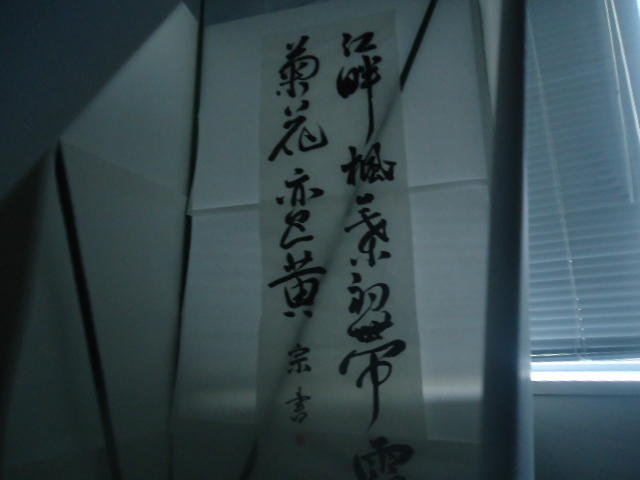 江畔楓葉初帶霜
菊花亦已黃
宗書